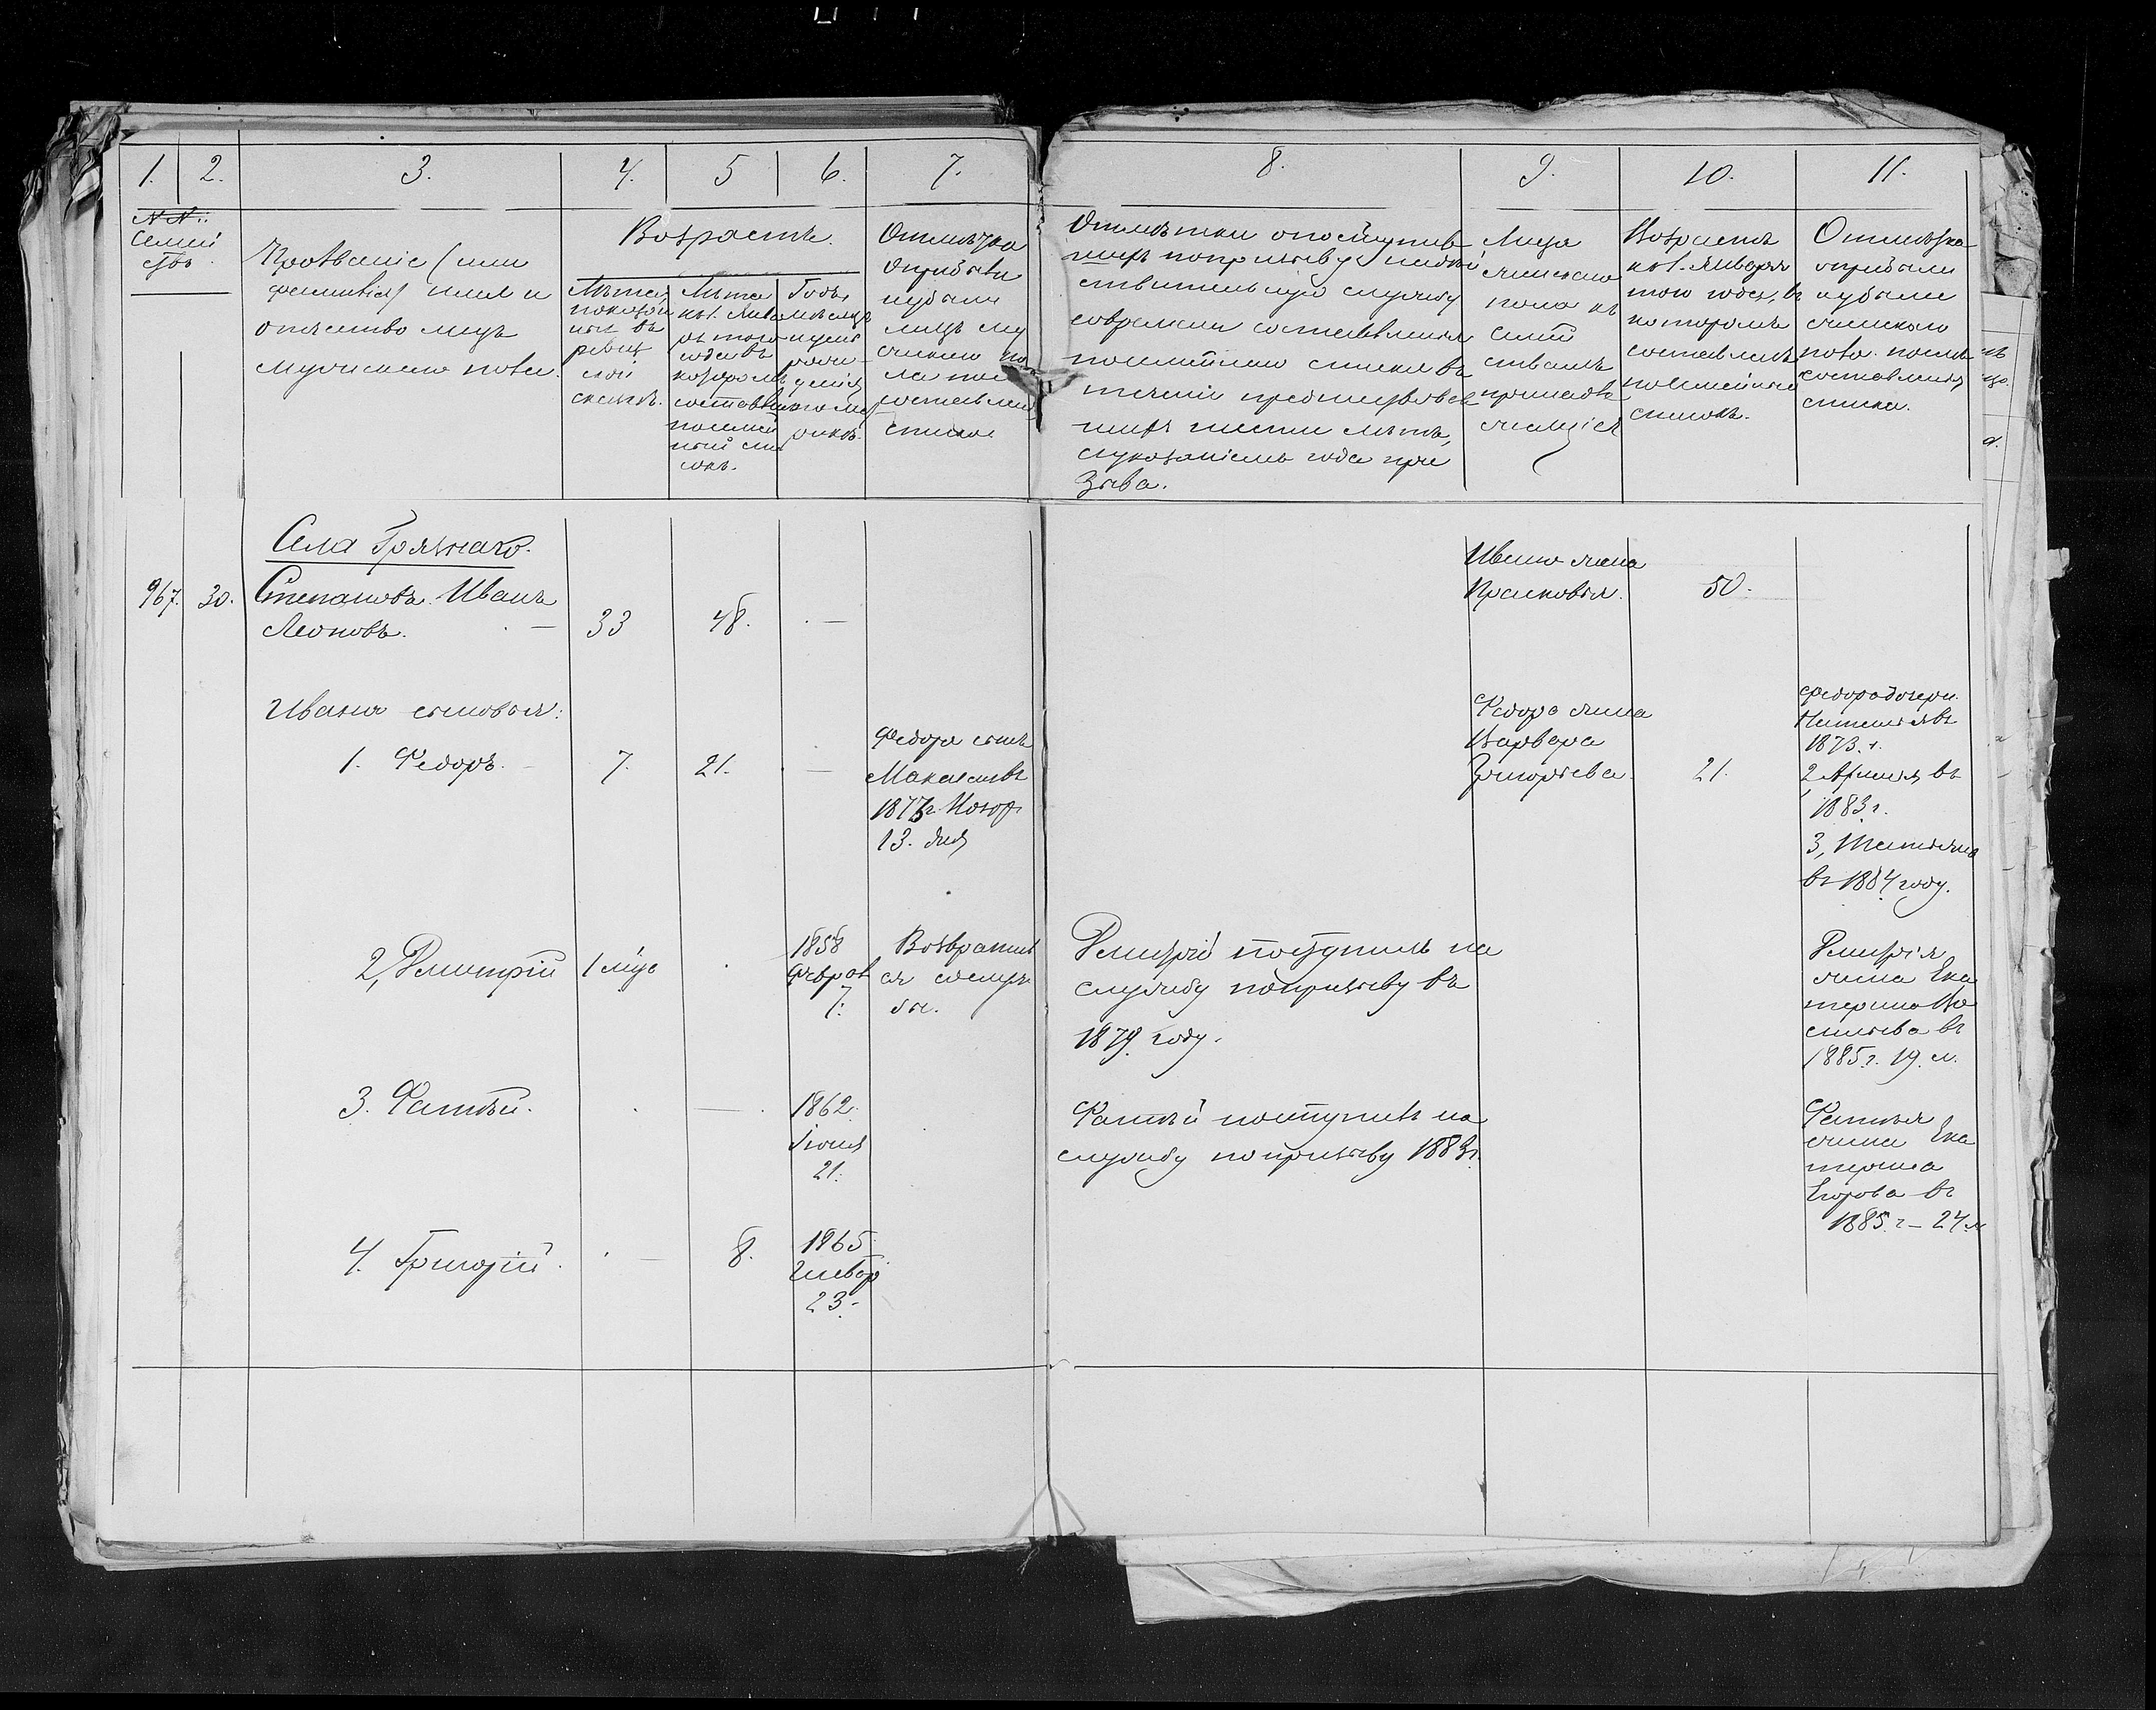 1. 2. 3. 4. 5 6. 7. 8. 9. 10. 11.
№№:
Семей
ствъ
Прозваніе (или
фамилія) имя и
отчество лицъ
мужскаго пола.
Возрастъ.
Лѣта,
показан
ныя въ
ревиз
ской
сказкѣ.
Лѣта
къ 1. Янва
ря того
года въ
которомъ
составленъ
посемей
ный спи
сокъ.
Годъ,
мѣсяцъ
и день
рож
денія
Отмѣтка
о прибыли
и убыли
лицъ му
жскаго по
ла послѣ
составленія
списка
Отмѣтки о поступив
шихъ по призыву на дѣй
ствительную службу
со времени составленія
посемейнаго списка въ
теченіи предшествовав
шихъ шести лѣтъ,
съ указаніемъ года при
зыва.
Лица
женскаго
пола къ
семей
ствамъ
принадле
жащія
Возрастъ
къ 1. Января
того года, въ
которомъ
составленъ
посемейный
списокъ.
Отмѣтка
о прибыли
и убыли
женскаго
пола послѣ
составленія
списка.
Села Грязнаго.
967. 30. Степановъ Иванъ
Леоновъ. — 33 48. —
Ивана жена
Прасковья. 50.
Ивана сыновья:
1. Федоръ. — 7. 21. —
Федора сынъ
Макаръ въ
1877г. Нояб
13. дня
Федора жена
Варвара
Григорьева 21.
Федора дочери
Наталья въ
1873. г.
2, Афимья въ
1883г.
3, Татьяна
въ 1884 году.
2, Дмитрій 1 мѣс
1858
Феврал
7.
Возвратил
ся со служ
бы.
Дмитрій поступилъ на
службу по призыву въ
1879 году.
Дмитрія
жена Ека
терина Ва
сильева въ
1885г. 19. л.
3. Фатѣй. —
1862.
Іюня
21.
Фатѣй поступилъ на
службу по призыву 1883г.
Фатѣя
жена Ека
терина
Егорова въ
1885. г — 24 л
4. Григорій. — 8.
1865
Генвар
23.